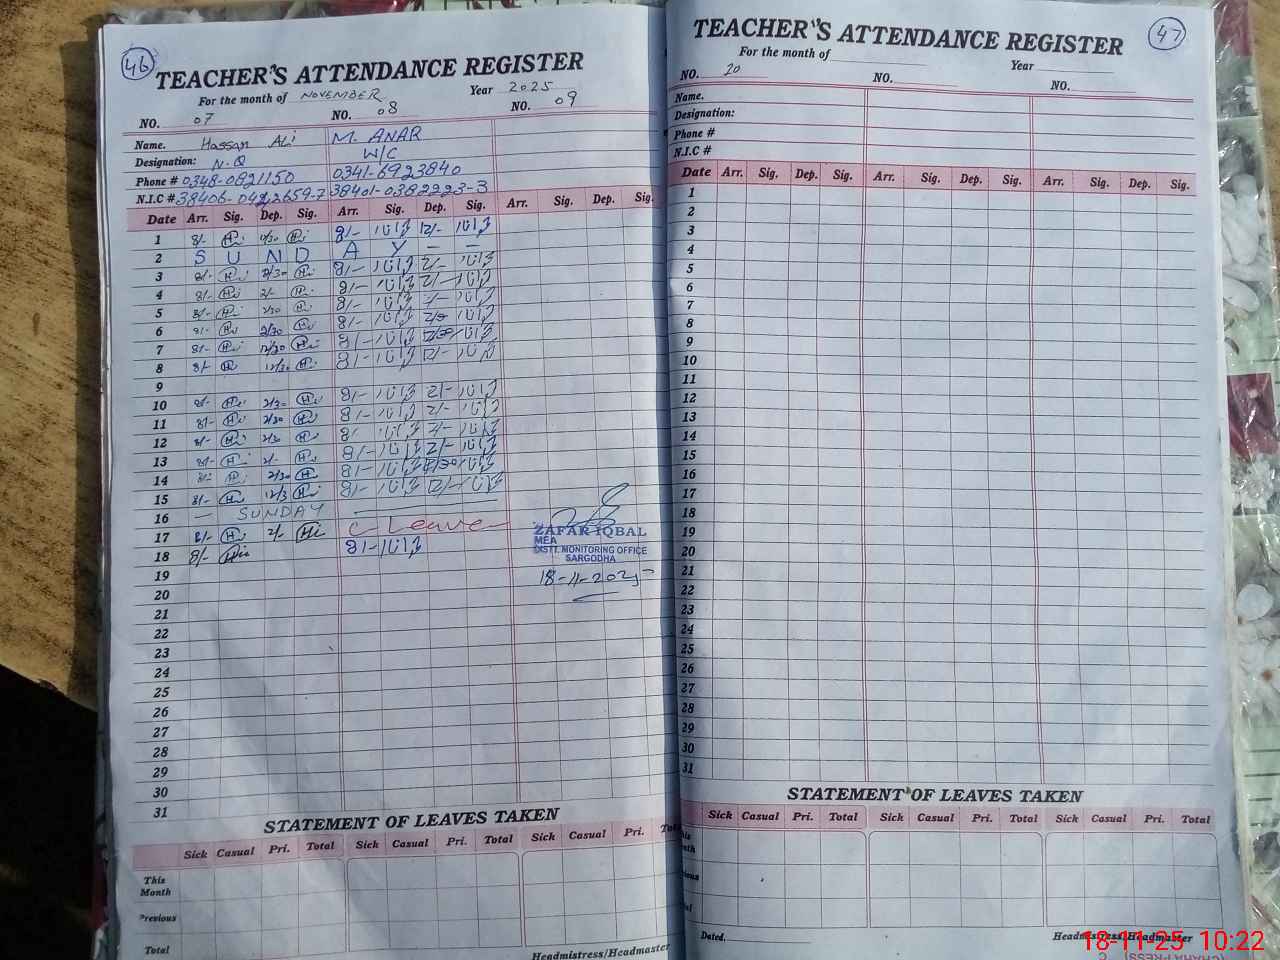 46
TEACHER'S ATTENDANCE REGISTER
For the month of NOVEMBER Year 2025
NO. 07 NO. 08 NO. 09
Name. Hassan Ali M. ANAR
Designation: N.Q W/C
Phone # 0348-0821150 0341-6923840
N.I.C # 38406-0422659-7 38401-0382223-3
Date Arr. Sig. Dep. Sig. Arr. Sig. Dep. Sig. Arr. Sig. Dep. Sig.
1 8/- Hi 12/30 Hi 8/- 12/-
2 S U N D A Y - -
3 8/- Hi 2/30 Hi 8/- 2/-
4 8/- Hi 2/- Hi 8/- 2/-
5 8/- Hi 2/30 Hi 8/-
6 8/- Hi 2/30 Hi 8/- 2/30
7 8/- Hi 12/30 Hi 8/- 12/30
8 8/- Hi 12/30 Hi 8/- 12/-
9
10 8/- Hi 2/30 Hi 8/- 2/-
11 8/- Hi 2/30 Hi 8/- 2/-
12 8/- Hi 2/30 Hi 8/- 2/-
13 8/- Hi 2/- Hi 8/- 2/-
14 8/- Hi 2/30 Hi 8/-
15 8/- Hi 12/3 Hi 8/- 12/-
16 - SUNDAY
17 8/- Hi 2/- Hi C Leave
18 8/- Hi 8/-
ZAFAR IQBAL
MEA
DISTT. MONITORING OFFICE
SARGODHA
18-11-2025
19
20
21
22
23
24
25
26
27
28
29
30
31
STATEMENT OF LEAVES TAKEN
Sick Casual Pri. Total Sick Casual Pri. Total Sick Casual Pri.
This Month
Previous
Total
Headmistress/Headmaster
47
TEACHER'S ATTENDANCE REGISTER
For the month of Year
NO. 20 NO. NO.
Name.
Designation:
Phone #
N.I.C #
Date Arr. Sig. Dep. Sig. Arr. Sig. Dep. Sig. Arr. Sig. Dep. Sig.
1
2
3
4
5
6
7
8
9
10
11
12
13
14
15
16
17
18
19
20
21
22
23
24
25
26
27
28
29
30
31
STATEMENT OF LEAVES TAKEN
Sick Casual Pri. Total Sick Casual Pri. Total Sick Casual Pri. Total
Dated.
Headmistress/Headmaster
18-11-25 10:22